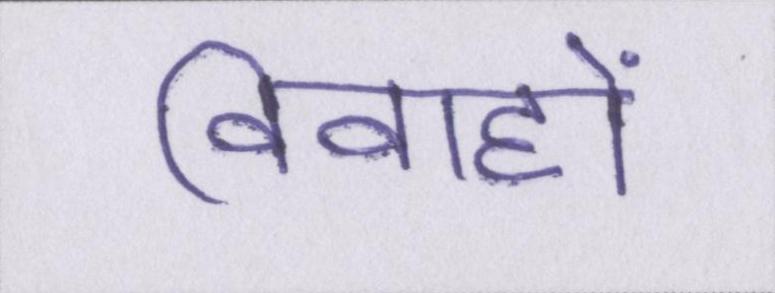 विवाहों